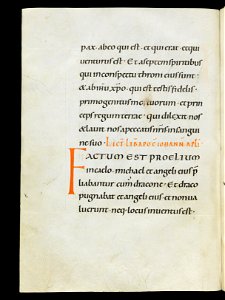 pax. abeo qui est. et qui erat. et qui
uenturus est. Et aseptem spiritibus
qui inconspectu throni eius sunt.
& abihu xpo. qui est testis fidelis.
primogenitus mortuorum. et prin
ceps regum terrae. qui dilexit nos
& lauit nos apeccatis nris insangui
ne suo.
FACTUM EST PROELIUM
incaelo. michael et angeli eius p̄
liabantur cum dracone. Et draco
pugnabat et angeli eius. et non ua
luerunt. neq; locus inuentus est.